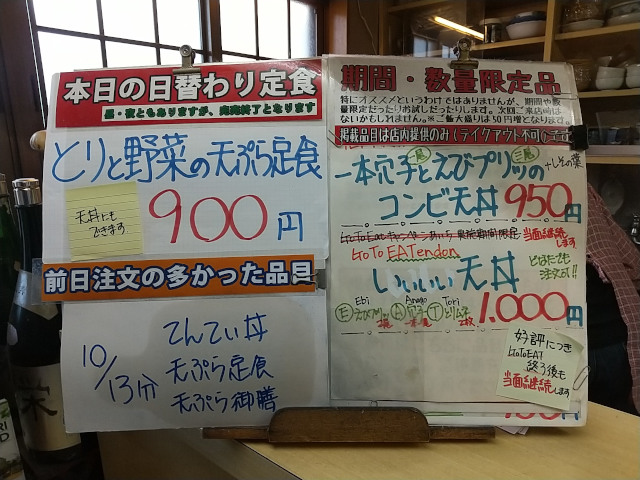 本日の日替わり定食
昼・夜ともありますが、完売終了となります
とりと野菜の天ぷら定食
天丼にも
できます
900円
前日注文の多かった品目
10/13分
てんてい丼
天ぷら定食
天ぷら御膳
期間・数量限定品
特にオススメというわけではありませんが、期間や数
量限定だったりお試しだったりします。次回ご来店時は
ないかもしれません。※ご飯大盛りは50円増となります。
掲載品目は店内提供のみ(テイクアウト不可)です
一本穴子とえびプリッの
一尾
三尾
+しその葉
コンビ天丼 950円
GoToEatキャンペーンあいち 実施期間限定 当面継続します
GoTo EATendon
いいぃぃ天丼
どなたでも
注文可!!
Ebi
Anago
Tori
1,000円
好評につき
GoToEAT
終了後も
当面継続します
栄